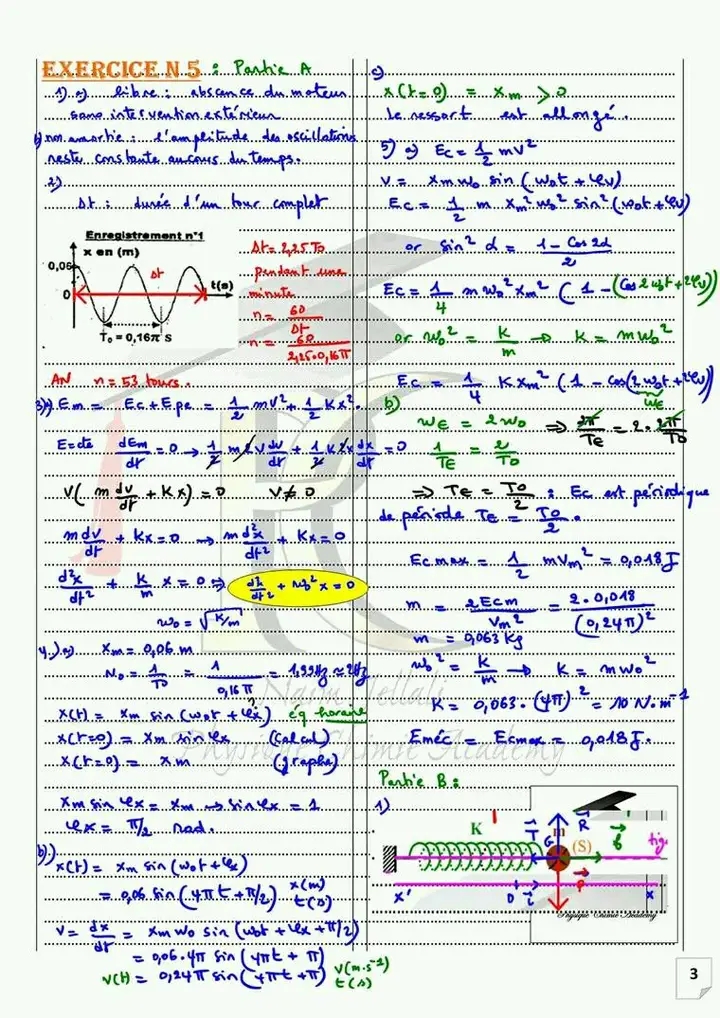 EXERCICE N 5 : Partie A
1) a) libre : absence du moteur
sans intervention extérieur
b) non amortie : l'amplitude des oscillations
reste constante au cours du temps.
2)
Δt : durée d'un tour complet
Enregistrement n°1
x en (m)
0,06
Δt
0
t(s)
T₀ = 0,16π S
Δt = 2,25 T₀
pendant une
minute
n = 60/Δt
n = 60/(2,25·0,16π)
AN n = 53 tours.
3) Em = Ec + Epe = 1/2 mV² + 1/2 Kx².
E = cte dEm/dt = 0 → 1/2 m 2 V dv/dt + 1/2 K 2 x dx/dt = 0
V( m dv/dt + Kx ) = 0 V ≠ 0
m dv/dt + Kx = 0 → m d²x/dt² + Kx = 0
d²x/dt² + K/m x = 0 ⇒ d²x/dt² + ω₀² x = 0
ω₀ = √(K/m)
4) a) xm = 0,06 m
N₀ = 1/T₀ = 1/(0,16π) = 1,99 Hz ≈ 2 Hz
x(t) = xm sin (ω₀t + φx) éq horaire
x(t=0) = xm sin φx (calcul)
x(t=0) = xm (graphe)
xm sin φx = xm → sin φx = 1
φx = π/2 rad.
b) x(t) = xm sin (ω₀t + φx)
= 0,06 sin (4πt + π/2) x(m) t(s)
V = dx/dt = xm ω₀ sin (ω₀t + φx + π/2)
= 0,06·4π sin (4πt + π)
V(t) = 0,24π sin (4πt + π) V(m·s⁻¹) t(s)
c)
x(t=0) = xm > 0
le ressort est allongé.
5) a) Ec = 1/2 mV²
V = xm ω₀ sin (ω₀t + φv)
Ec = 1/2 m xm² ω₀² sin² (ω₀t + φv)
or sin² α = (1 - Cos 2α)/2
Ec = 1/4 m ω₀² xm² ( 1 - (Cos 2ω₀t + 2φv))
or ω₀² = K/m → K = mω₀²
Ec = 1/4 K xm² (1 - Cos(2ω₀t + 2φv))
ωE
b) ωE = 2ω₀ ⇒ 2π/TE = 2·2π/T₀
1/TE = 2/T₀
⇒ TE = T₀/2 : Ec est périodique
de période TE = T₀/2.
Ec max = 1/2 mVm² = 0,018 J
m = 2Ecm/Vm² = 2·0,018/(0,24π)²
m = 0,063 Kg
ω₀² = K/m → K = mω₀²
K = 0,063·(4π)² = 10 N·m⁻¹
Eméc = Ecmax = 0,018 J.
Partie B :
1)
K
T
G
m
R
(S)
f
tige
P
x'
O
i
x
Physique Chimie Academy
Physique Chimie Academy
3